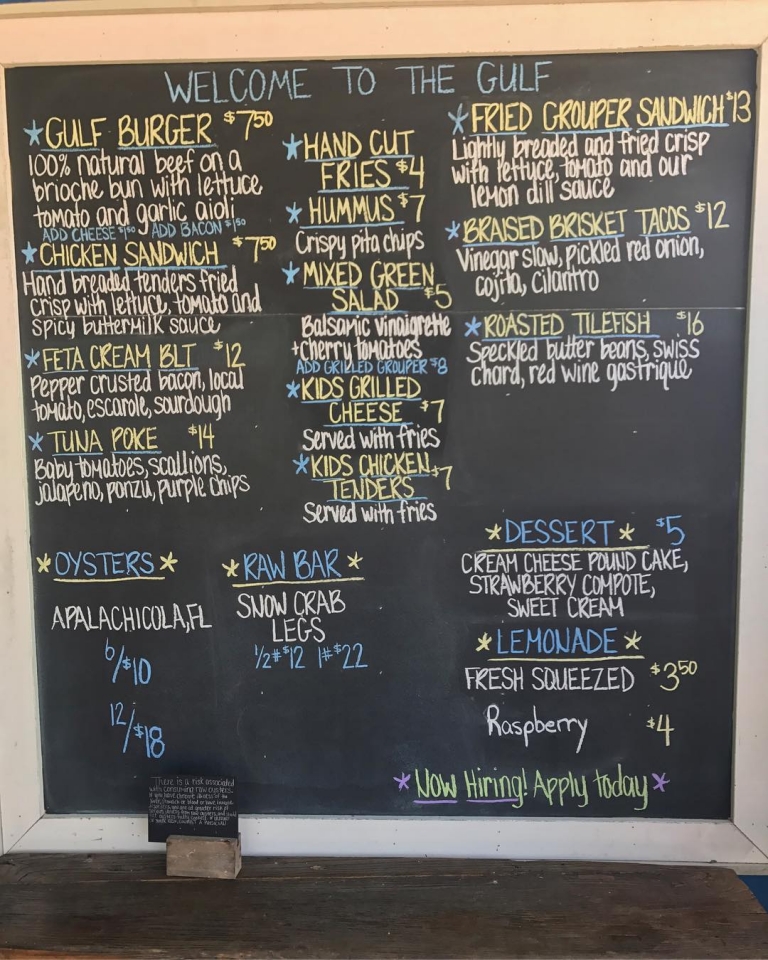 WELCOME TO THE GULF
*GULF BURGER $7.50
100% natural beef on a
brioche bun with lettuce
tomato and garlic aioli
ADD CHEESE $1.50 ADD BACON $1.50
*CHICKEN SANDWICH $7.50
Hand breaded tenders fried
crisp with lettuce, tomato and
spicy buttermilk sauce
*FETA CREAM BLT $12
Pepper crusted bacon, local
tomato, escarole, sourdough
*TUNA POKE $14
Baby tomatoes, scallions,
jalapeño, ponzu, purple chips
*HAND CUT
FRIES $4
*HUMMUS $7
Crispy pita chips
*MIXED GREEN
SALAD $5
Balsamic vinaigrette
+cherry tomatoes
ADD GRILLED GROUPER $8
*KIDS GRILLED
CHEESE $7
Served with fries
*KIDS CHICKEN
TENDERS $7
Served with fries
*FRIED GROUPER SANDWICH $13
Lightly breaded and fried crisp
with lettuce, tomato and our
lemon dill sauce
*BRAISED BRISKET TACOS $12
Vinegar slaw, pickled red onion,
cojita, cilantro
*ROASTED TILEFISH $16
Speckled butter beans, swiss
chard, red wine gastrique
*OYSTERS*
APALACHICOLA, FL
6/$10
12/$18
*RAW BAR*
SNOW CRAB
LEGS
1/2# $12 1# $22
*DESSERT* $5
CREAM CHEESE POUND CAKE,
STRAWBERRY COMPOTE,
SWEET CREAM
*LEMONADE*
FRESH SQUEEZED $3.50
Raspberry $4
*Now Hiring! Apply today*
There is a risk associated
with consuming raw oysters.